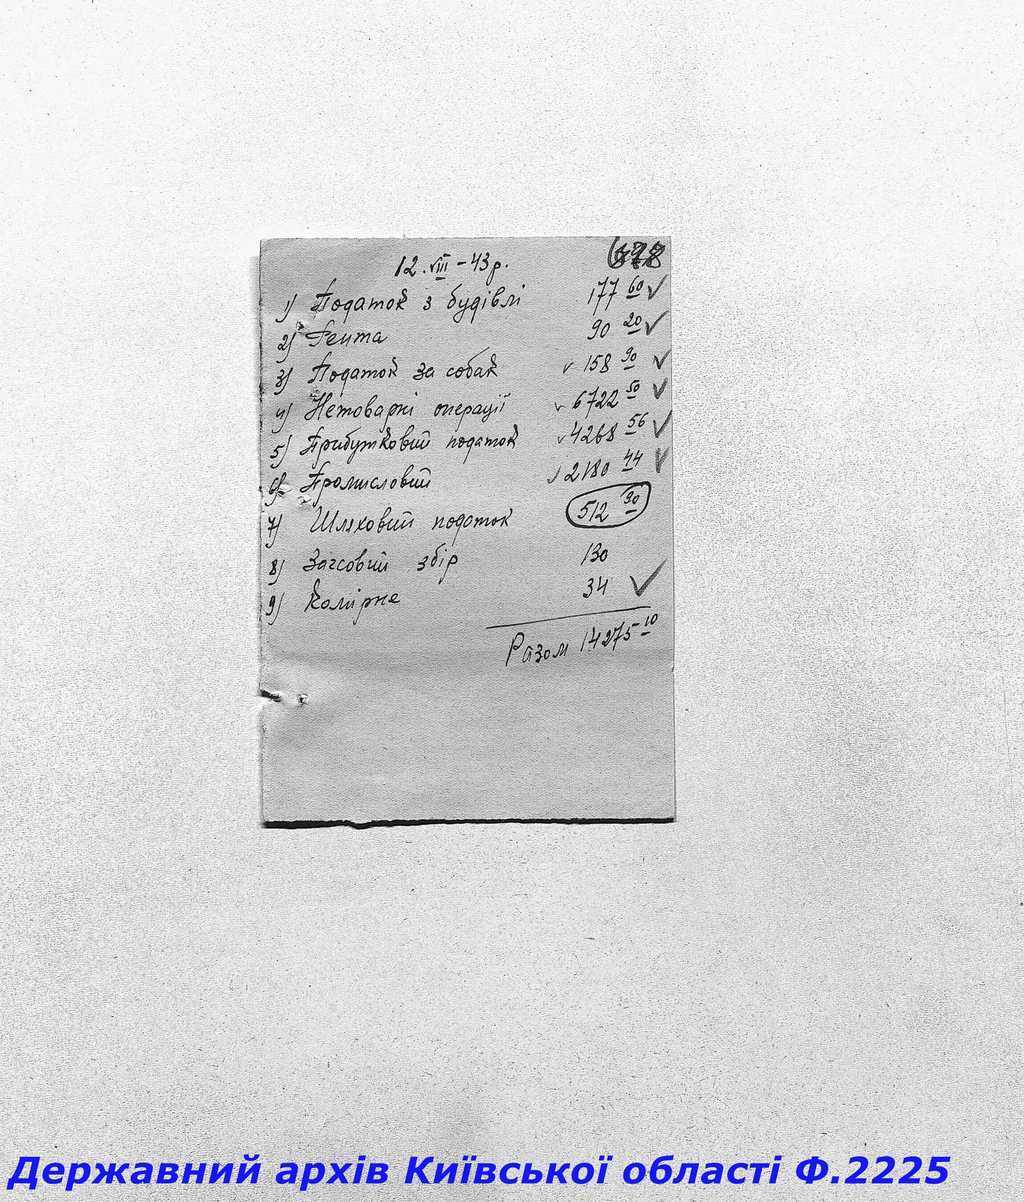 12.VIII-43р.
1) Податок з будівлі 177 60 ✓
2) Рента 90 20 ✓
3) Податок за собак ✓ 158 90 ✓
4) Нетоварні операції ✓ 6722 50 ✓
5) Прибутковий податок ✓ 4268 56 ✓
6) Промисловий ✓ 2180 44 ✓
7) Шляховий податок 512 90
8) Загсовий збір 130
9) Комірне 34 ✓
Разом 14275 10
Державний архів Київської області Ф.2225